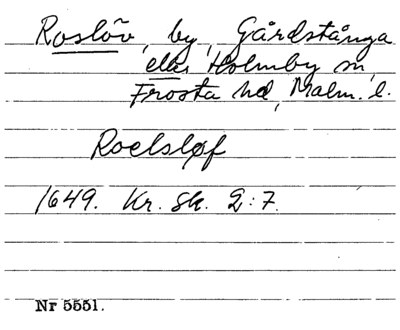 Roslöv, by, Gårdstånga
eller Holmby sn,
Frosta hd, Malm. l.
Roelsløf
1649. Kr. Sk. 2:7.
Nr 5551.